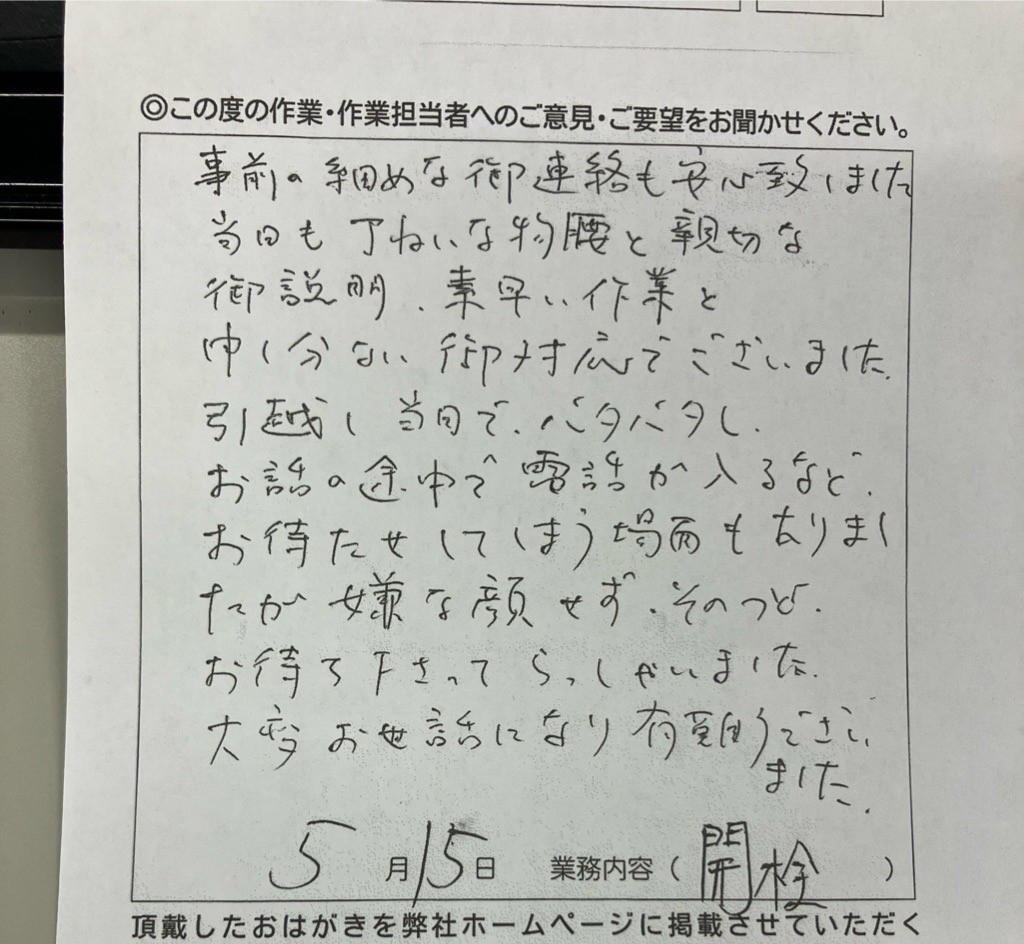 ◎この度の作業・作業担当者へのご意見・ご要望をお聞かせください。
事前の細めな御連絡も安心致しました
当日も丁ねいな物腰と親切な
御説明、素早い作業と
申し分ない御対応でございました。
引越し当日で、バタバタし、
お話の途中で電話が入るなど、
お待たせしてしまう場面もありまし
たが嫌な顔せず、そのつど、
お待ち下さってらっしゃいました。
大変お世話になり有難うござい
ました。
5月15日 業務内容(開栓)
頂戴したおはがきを弊社ホームページに掲載させていただく